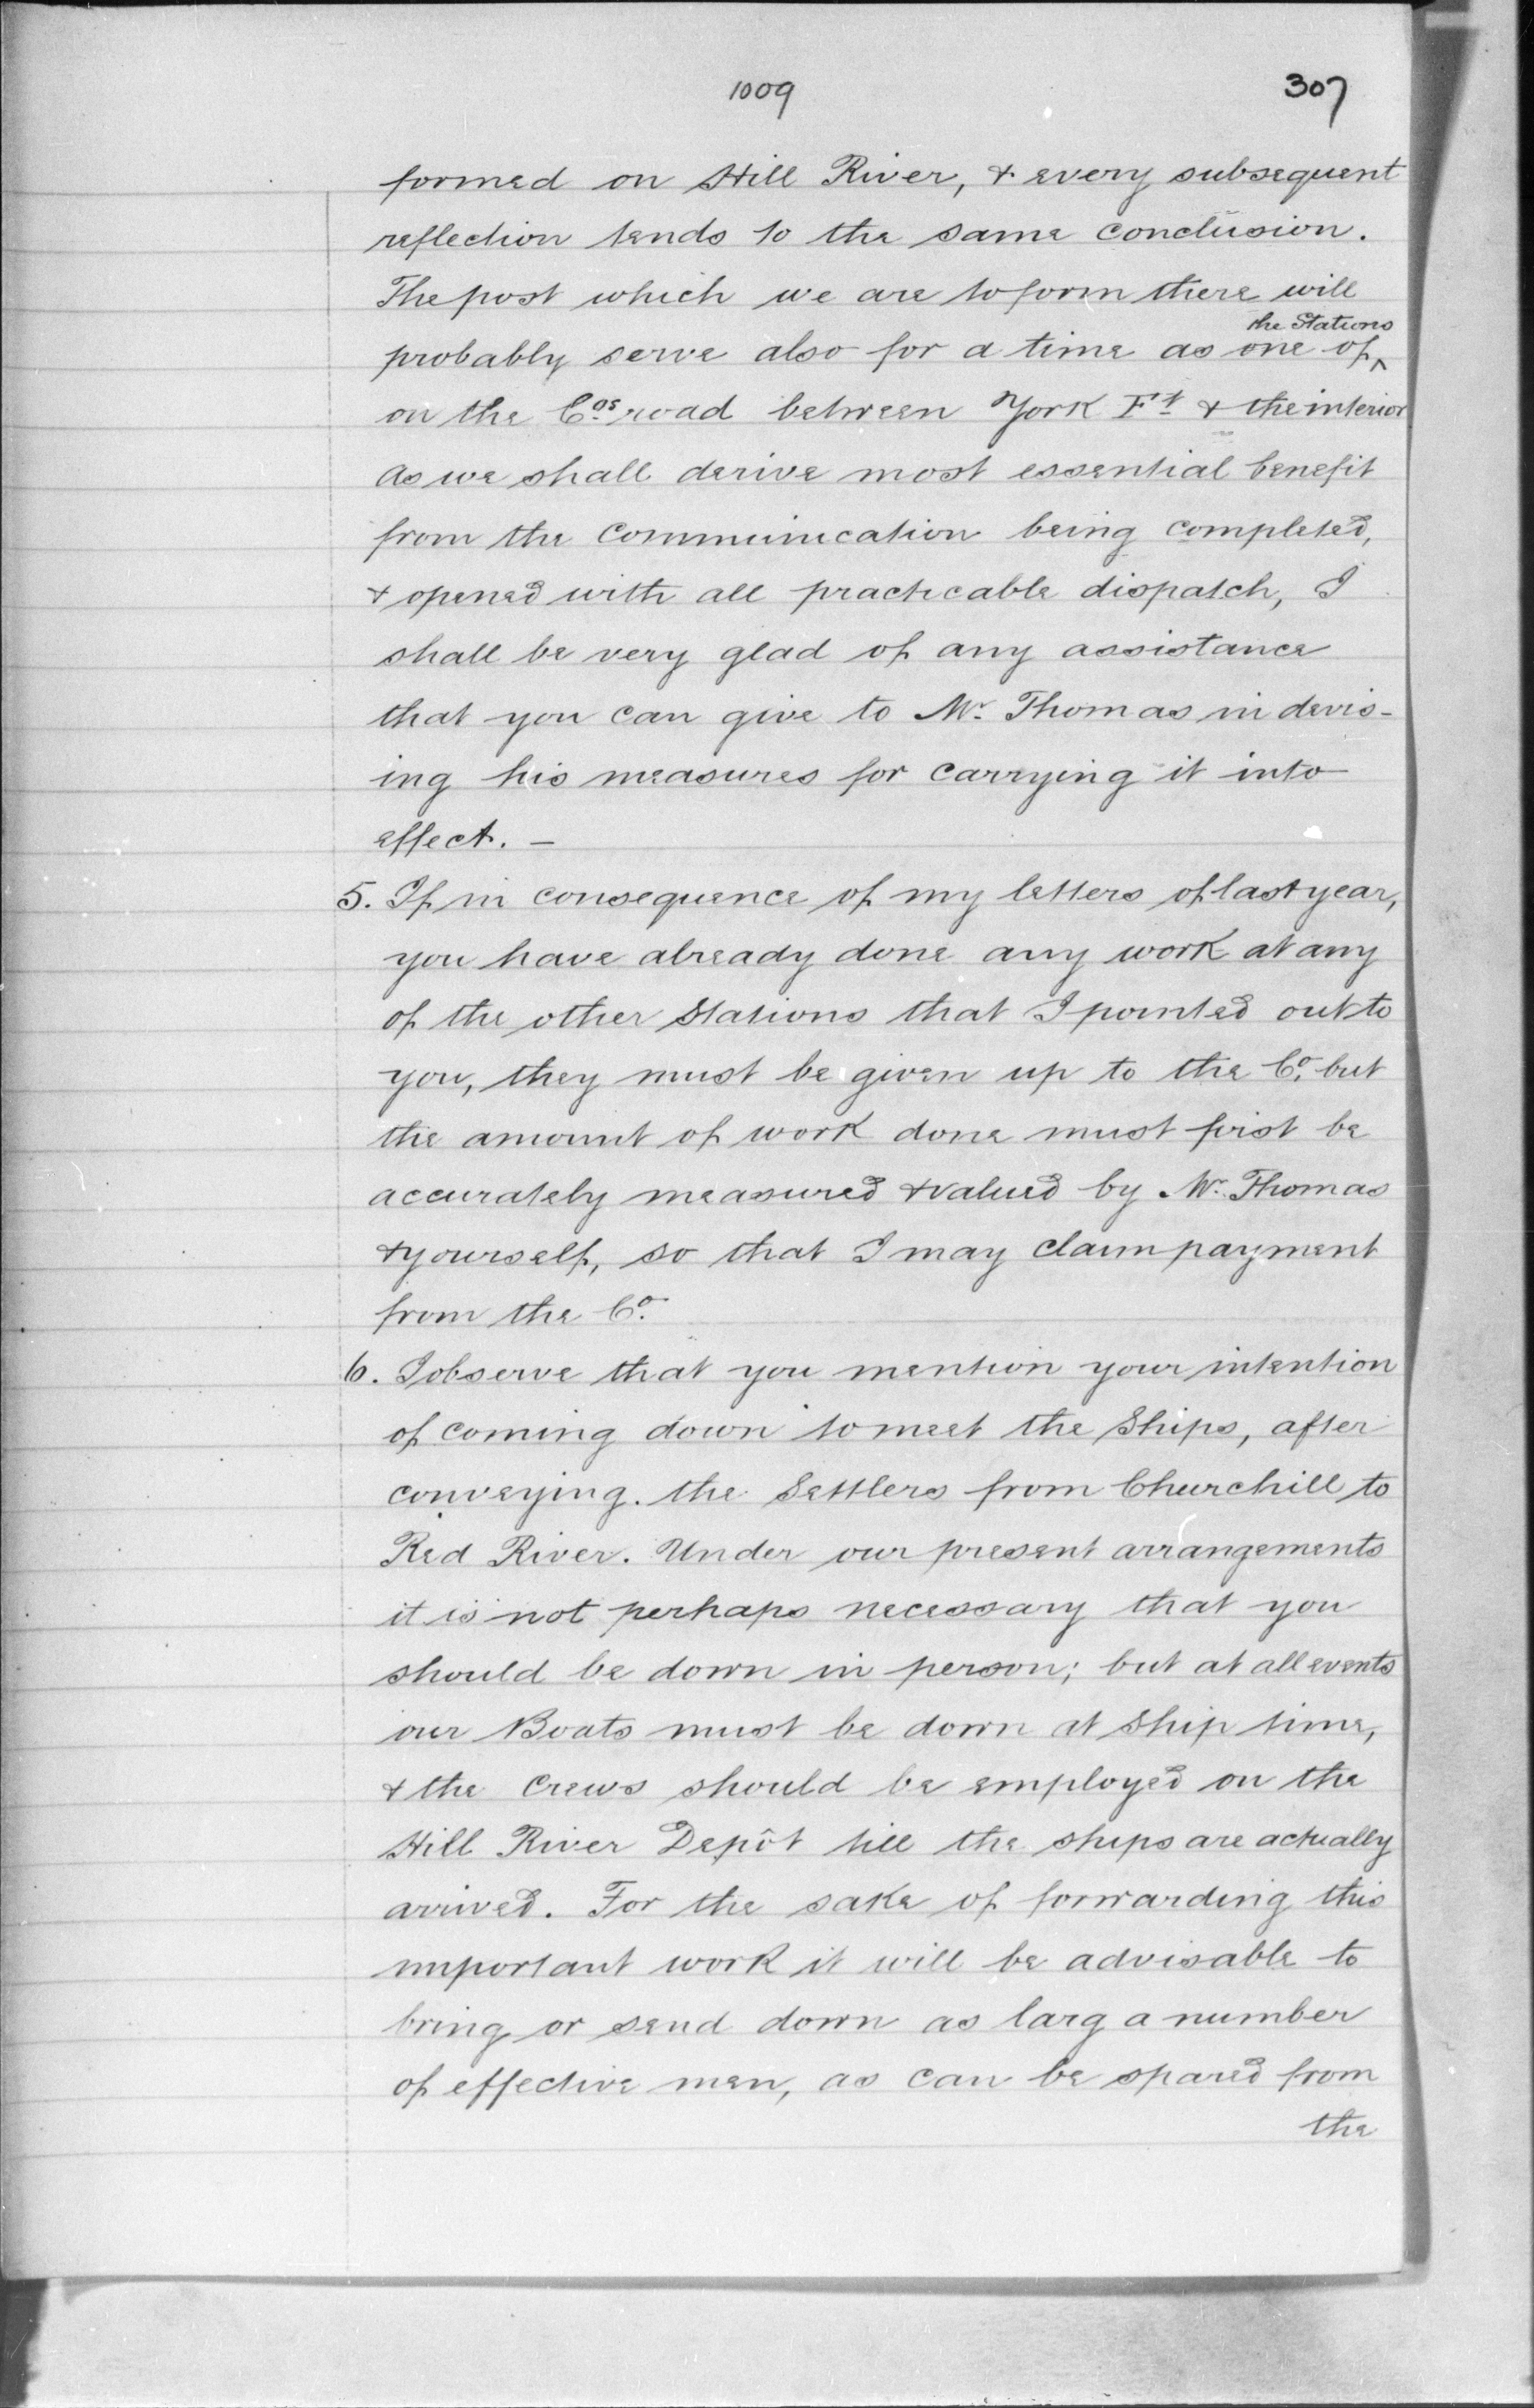 1009 307
formed on Hill River, & every subsequent
reflection tends to the same conclusion.
The post which we are to form there will
the Stations
probably serve also for a time as one of ^
on the Cos road between York Ft & the interior
As we shall derive most essential benefit
from the communication being completed,
& opened with all practicable dispatch, I
shall be very glad of any assistance
that you can give to Mr. Thomas in devis-
ing his measures for carrying it into
effect. —
5. If in consequence of my letters of last year,
you have already done any work at any
of the other Stations that I pointed out to
you, they must be given up to the Co. but
the amount of work done must first be
accurately measured & valued by Mr. Thomas
& yourself, so that I may claim payment
from the Co.
6. I observe that you mention your intention
of coming down to meet the Ships, after
conveying the Settlers from Churchill to
Red River. Under our present arrangements
it is not perhaps necessary that you
should be down in person; but at all events
our Boats must be down at Ship time,
& the Crews should be employed on the
Hill River Depôt till the ships are actually
arrived. For the sake of forwarding this
important work it will be advisable to
bring or send down as larg a number
of effective men, as can be spared from
the